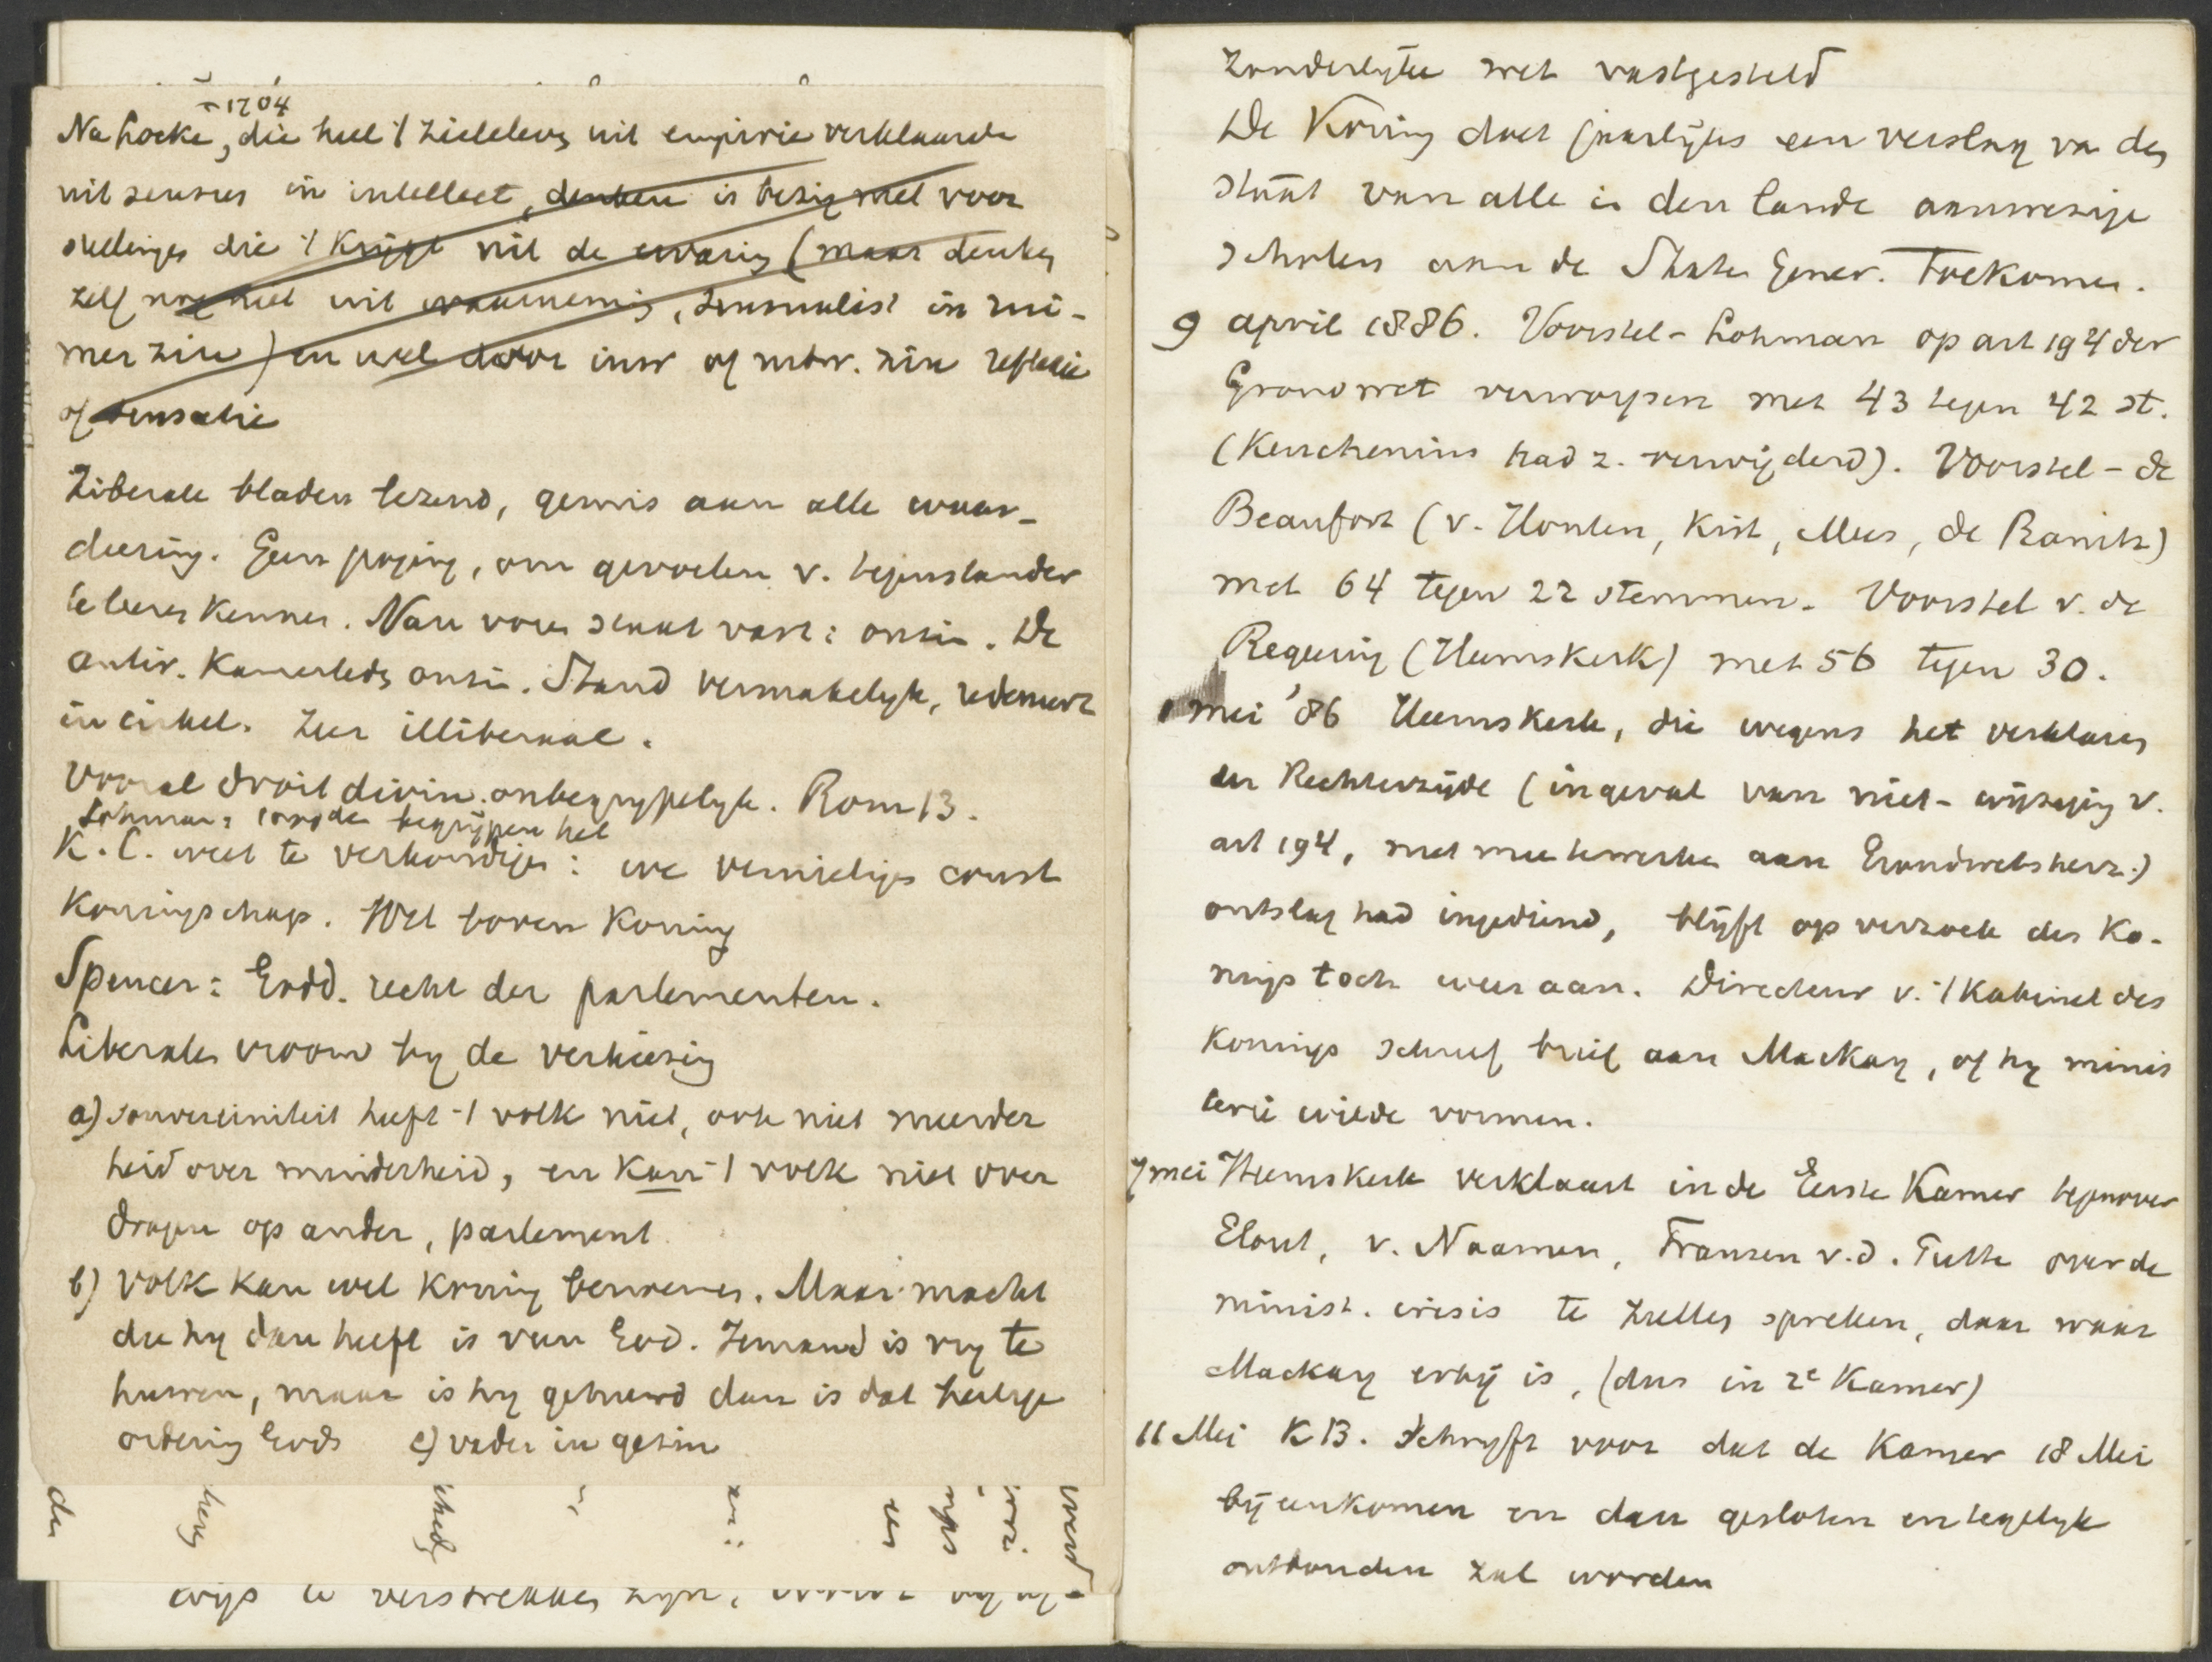 † 1704
Na Locke, die heel 't zieleleven uit empirie verklaarde
uit sensus en intellect, denken is bezig met voor
stellingen die 't krijgt uit de ervaring (maar denken
zelf nog niet uit waarneming, sensualist in rui-
mer zin) en wel door inw of uitw. zin reflexie
of sensatie
Liberale bladen lezend, gemis aan alle waar-
deering. Geen poging, om gevoelen v. tegenstander
te leeren kennen. Van voren staat vast: onzin. De
antir. Kamerleden onzin. Stand vermakelyk, redeneert
in cirkel. Zeer illiberaal.
Vooral droit divin onbegrypelyk. Rom 13.
Lohman: begrijpen het
K. C. weet te verkondigen: we vernietigen const
Koningschap. Wet boven Koning
Spencer: Godd. recht der parlementen.
Liberalen vroom by de verkiezing
a) souvereiniteit heeft 't volk niet, ook niet meerder
heid over minderheid, en kan 't volk niet over
dragen op ander, parlement
b) Volk kan wel Koning benoemen. Maar macht
die hy dan heeft is van God. Iemand is vry te
huwen, maar is hy gehuwd dan is dat heilige
ordening Gods c) vader in gezin
den
wijs te verstrekken zyn,
zonderlijke wet vastgesteld
De Koning doet jaarlijks een verslag van den
staat van alle in den lande aanwezige
scholen aan de Staten Gener. toekomen.
9 april 1886. Voorstel-Lohman op art 194 der
Grondwet verworpen met 43 tegen 42 st.
(Keuchenius had z. verwijderd). Voorstel-de
Beaufort (v. Houten, Kist, Mees, de Ranitz)
met 64 tegen 22 stemmen. Voorstel v. de
Regeering (Heemskerk) met 56 tegen 30.
mei '86 Heemskerk, die wegens het verklaren
der Rechterzijde (ingeval van niet-wijziging v.
art 194, niet mee te werken aan Grondwetsherz.)
ontslag had ingediend, blijft op verzoek des Ko-
nings toch weer aan. Directeur v. 't Kabinet des
Konings schreef brief aan Mackay, of hy minis
terie wilde vormen.
7 mei Heemskerk verklaart in de Eerste Kamer tegenover
Elout, v. Naamen, Fransen v.d. Putte over de
minist. crisis te zullen spreken, daar waar
Mackay erbij is, (dus in 2e Kamer)
11 Mei K B. schryft voor dat de Kamer 18 Mei
bijeenkomen en dan gesloten en tegelyk
ontbonden zal worden